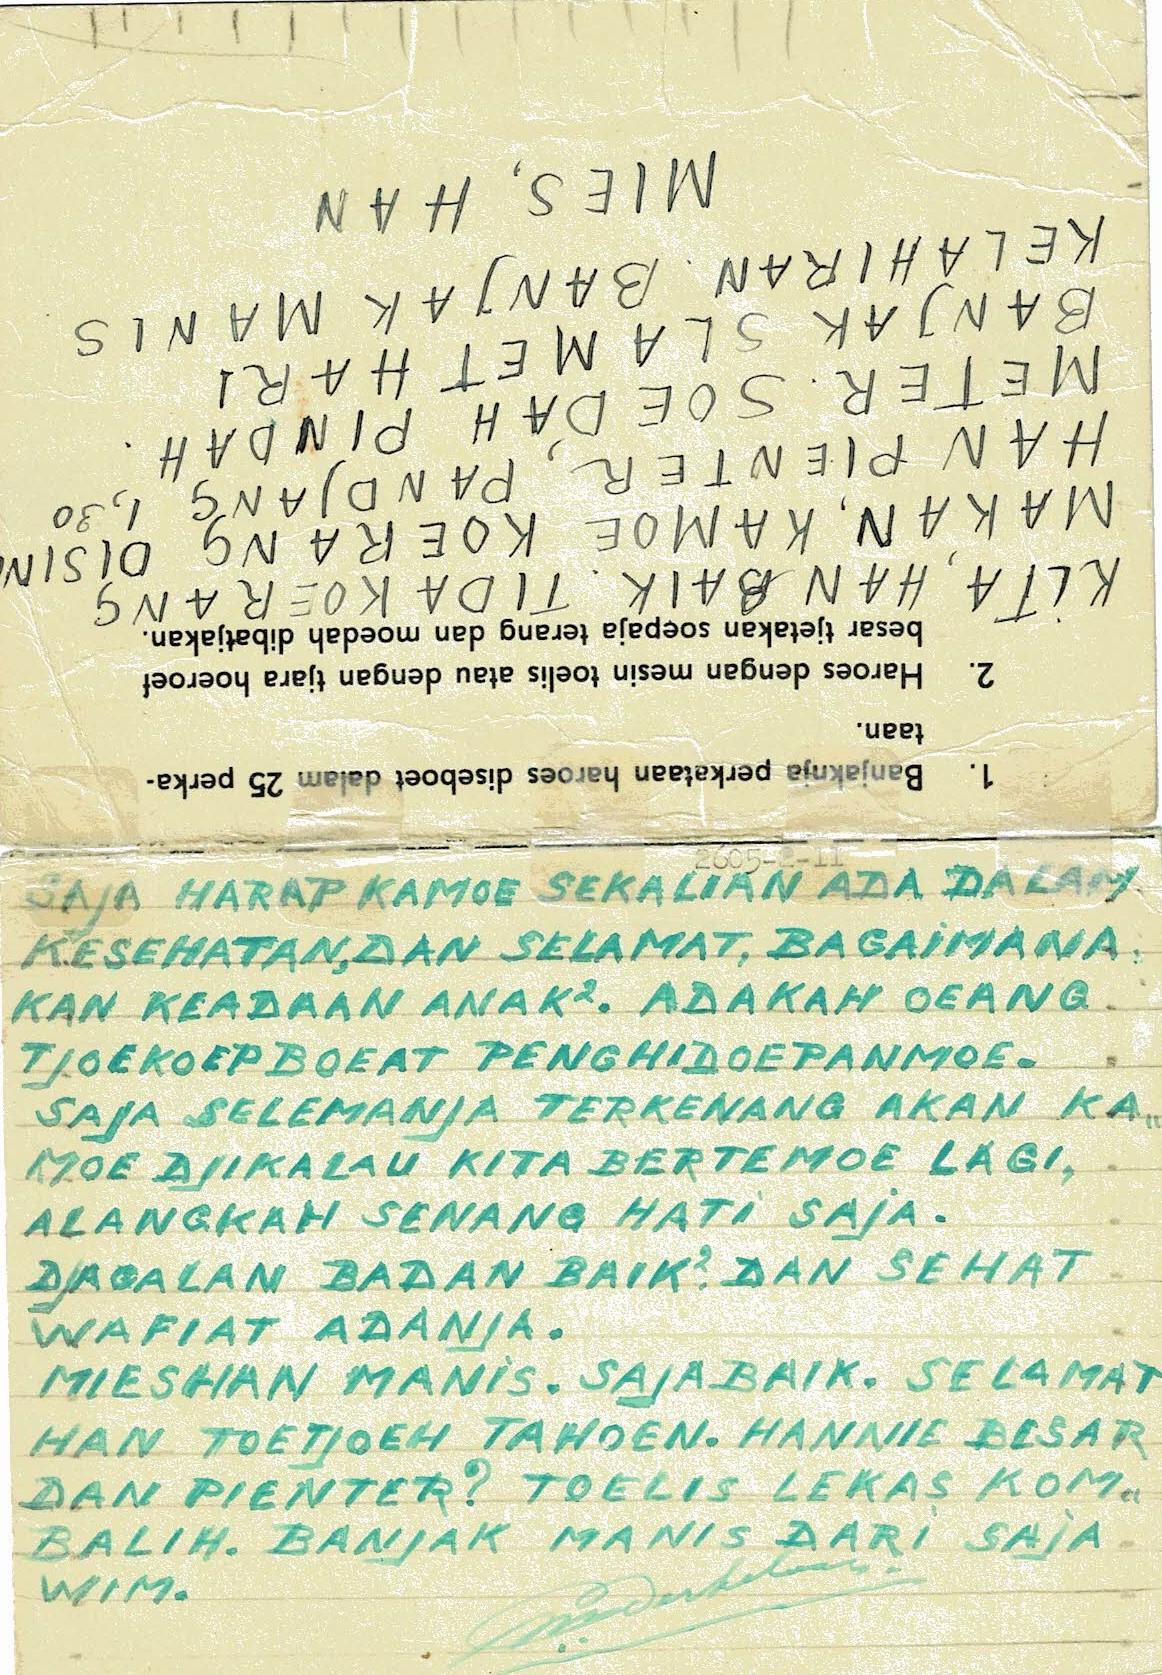 1. Banjaknja perkataan haroes diseboet dalam 25 perka-
taan.
2. Haroes dengan mesin toelis atau dengan tjara hoeroef
besar tjetakan soepaja terang dan moedah dibatjakan.
KITA, HAN BAIK. TIDA KOERANG
MAKAN, KAMOE KOERANG DISINI
HAN PIENTER, PANDJANG 1,30
METER. SOEDAH PINDAH.
BANJAK SLAMET HARI
KELAHIRAN. BANJAK MANIS
MIES, HAN
2605-2-11
SAJA HARAP KAMOE SEKALIAN ADA DALAM
KESEHATAN, DAN SELAMAT, BAGAIMANA
KAN KEADAAN ANAK². ADAKAH OEANG
TJOEKOEP BOEAT PENGHIDOEPANMOE.
SAJA SELEMANJA TERKENANG AKAN KA„
MOE DJIKALAU KITA BERTEMOE LAGI,
ALANGKAH SENANG HATI SAJA.
DJAGALAN BADAN BAIK² DAN SEHAT
WAFIAT ADANJA.
MIESHAN MANIS. SAJA BAIK. SELAMAT
HAN TOETJOEH TAHOEN. HANNIE BESAR
DAN PIENTER? TOELIS LEKAS KOM„
BALIH. BANJAK MANIS DARI SAJA
WIM.